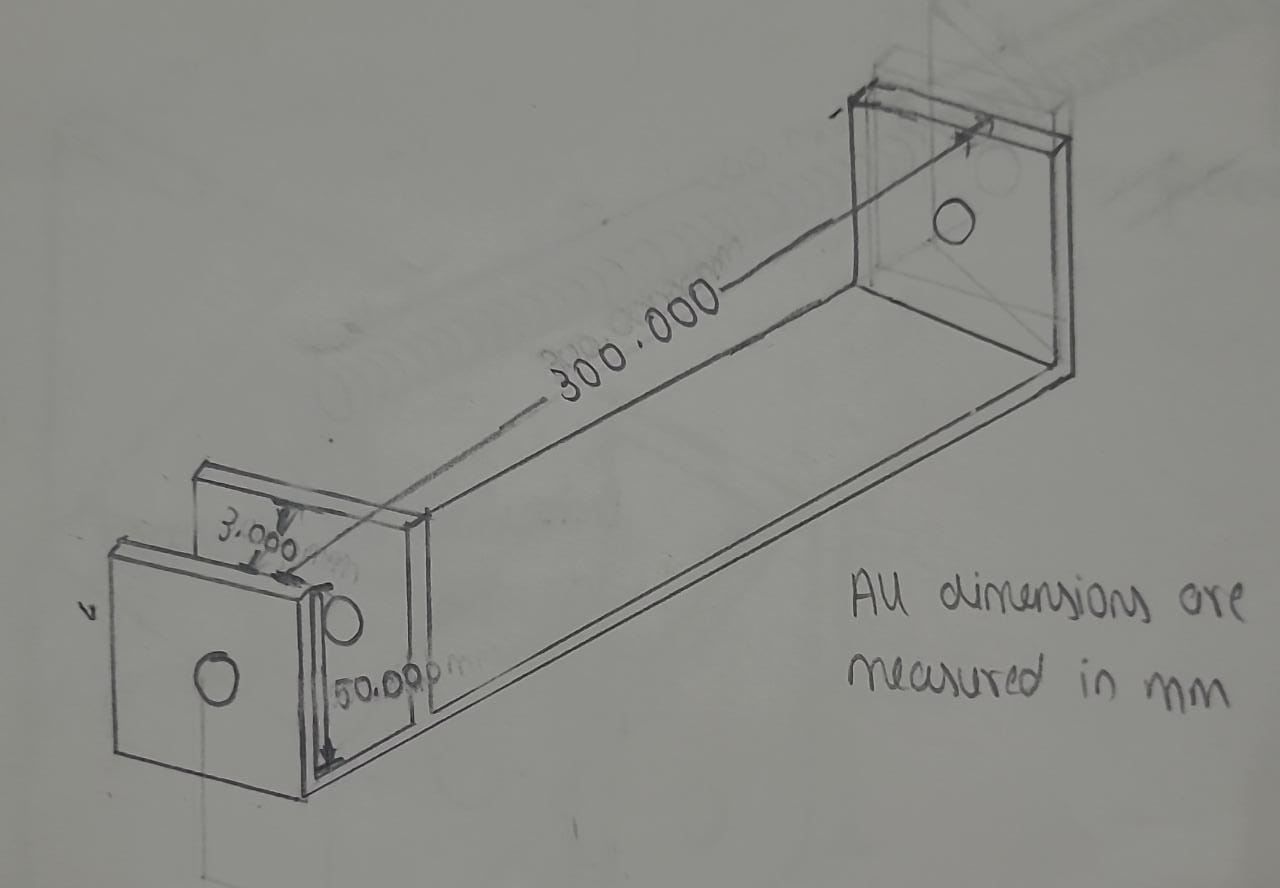 300.000
3.000
50.000
All dimensions are
measured in mm